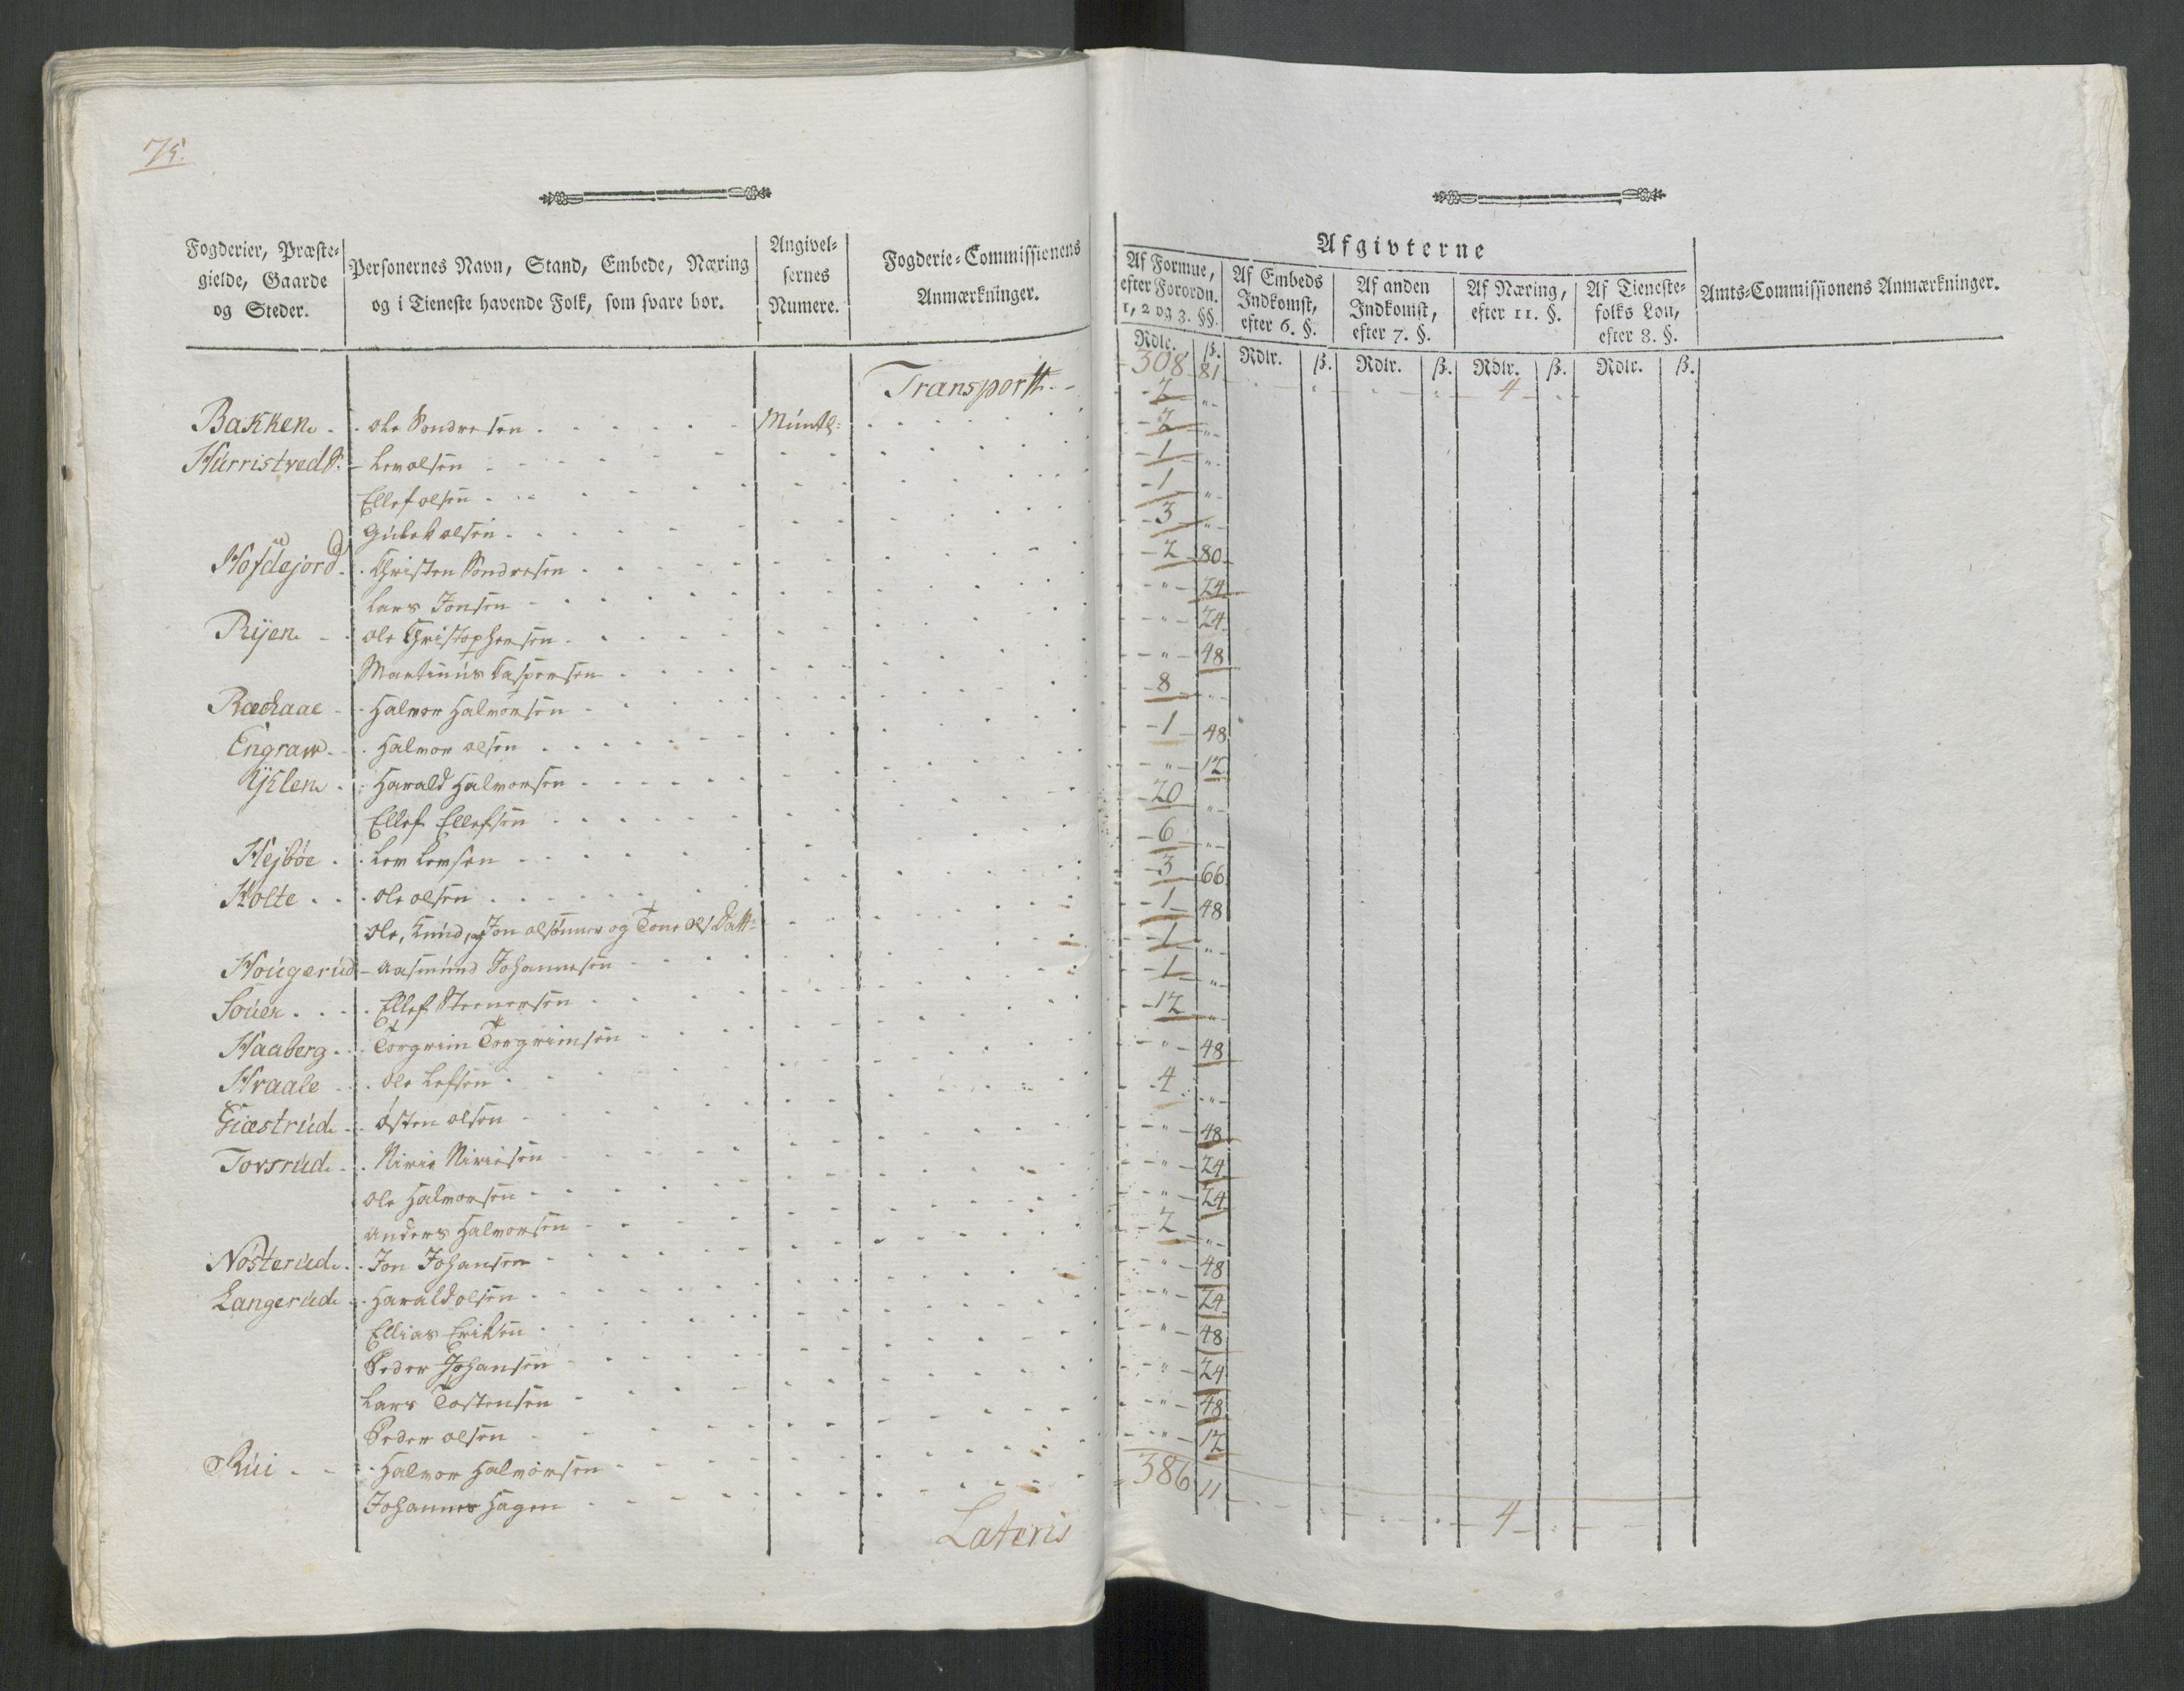 75.
Fogderier, Præste-gielde, Gaarde og Steder.
Personernes Navn, Stand, Embede, Næring og i Tieneste havende Folk, som svare bør.
Angivel-sernes Numere.
Fogderie-Commissionens Anmærkninger.
Afgivterne
Af Formue, efter Forordn. 1, 2 og 3. §§.
Af Embeds Indkomst, efter 6. §.
Af anden Indkomst, efter 7. §.
Af Næring, efter 11. §.
Af Tieneste-folks Løn, efter 8. §.
Amts-Commissionens Anmærkninger.
Rdlr. ß. Rdlr. ß. Rdlr. ß. Rdlr. ß. Rdlr. ß.
Transport 308 81 4
Bakken Ole Sondresen Mundtl: 2 "
Hurristvedt Lev Olsen 2 "
Ellef Olsen 1 "
Gubek Olsen 1 "
Hofdejord Christen Sondresen 3 "
Lars Jonsen 2 80
Rÿen Ole Christophersen " 24
Martinus Caspersen " 24
Ræchaae Halvor Halvorsen " 48
Engraw Halvor Olsen 8 "
Ÿklen Harald Halvorsen 1 48
Ellef Ellefsen " 12
Hejbøe Lev Levsen 20 "
Holte Ole Olsen 6 "
Ole, Knud, og Jon Olsønner og Tone Ols Datt: 3 66
Hougerud Aasmund Johannesen 1 48
Souer Ellef Steenersen 1 "
Haaberg Torgrim Torgrimsen 1 "
Hvaale Ole Lefsen 12 "
Giæstrud Østen Olsen " 48
Torsrud Nirie Niriesen 4 "
Ole Halvorsen " 48
Anders Halvorsen " 24
Nøsterud Jon Johansen " 24
Langerud Harald Olsen 2 "
Ellias Eriksen " 48
Peder Johansen " 24
Lars Tostensen " 48
Peder Olsen " 24
Rui Halvor Halvorsen " 48
Johannes Hagen " 12
Lateris 386 11 4